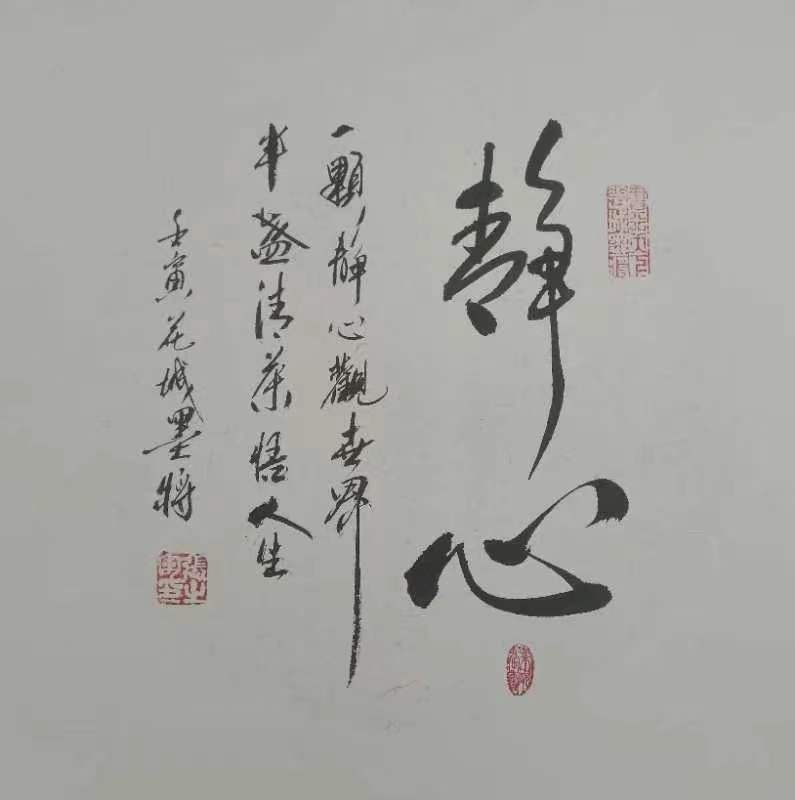 静心
一顆静心觀世界
半盞清茶悟人生
壬寅花城墨將